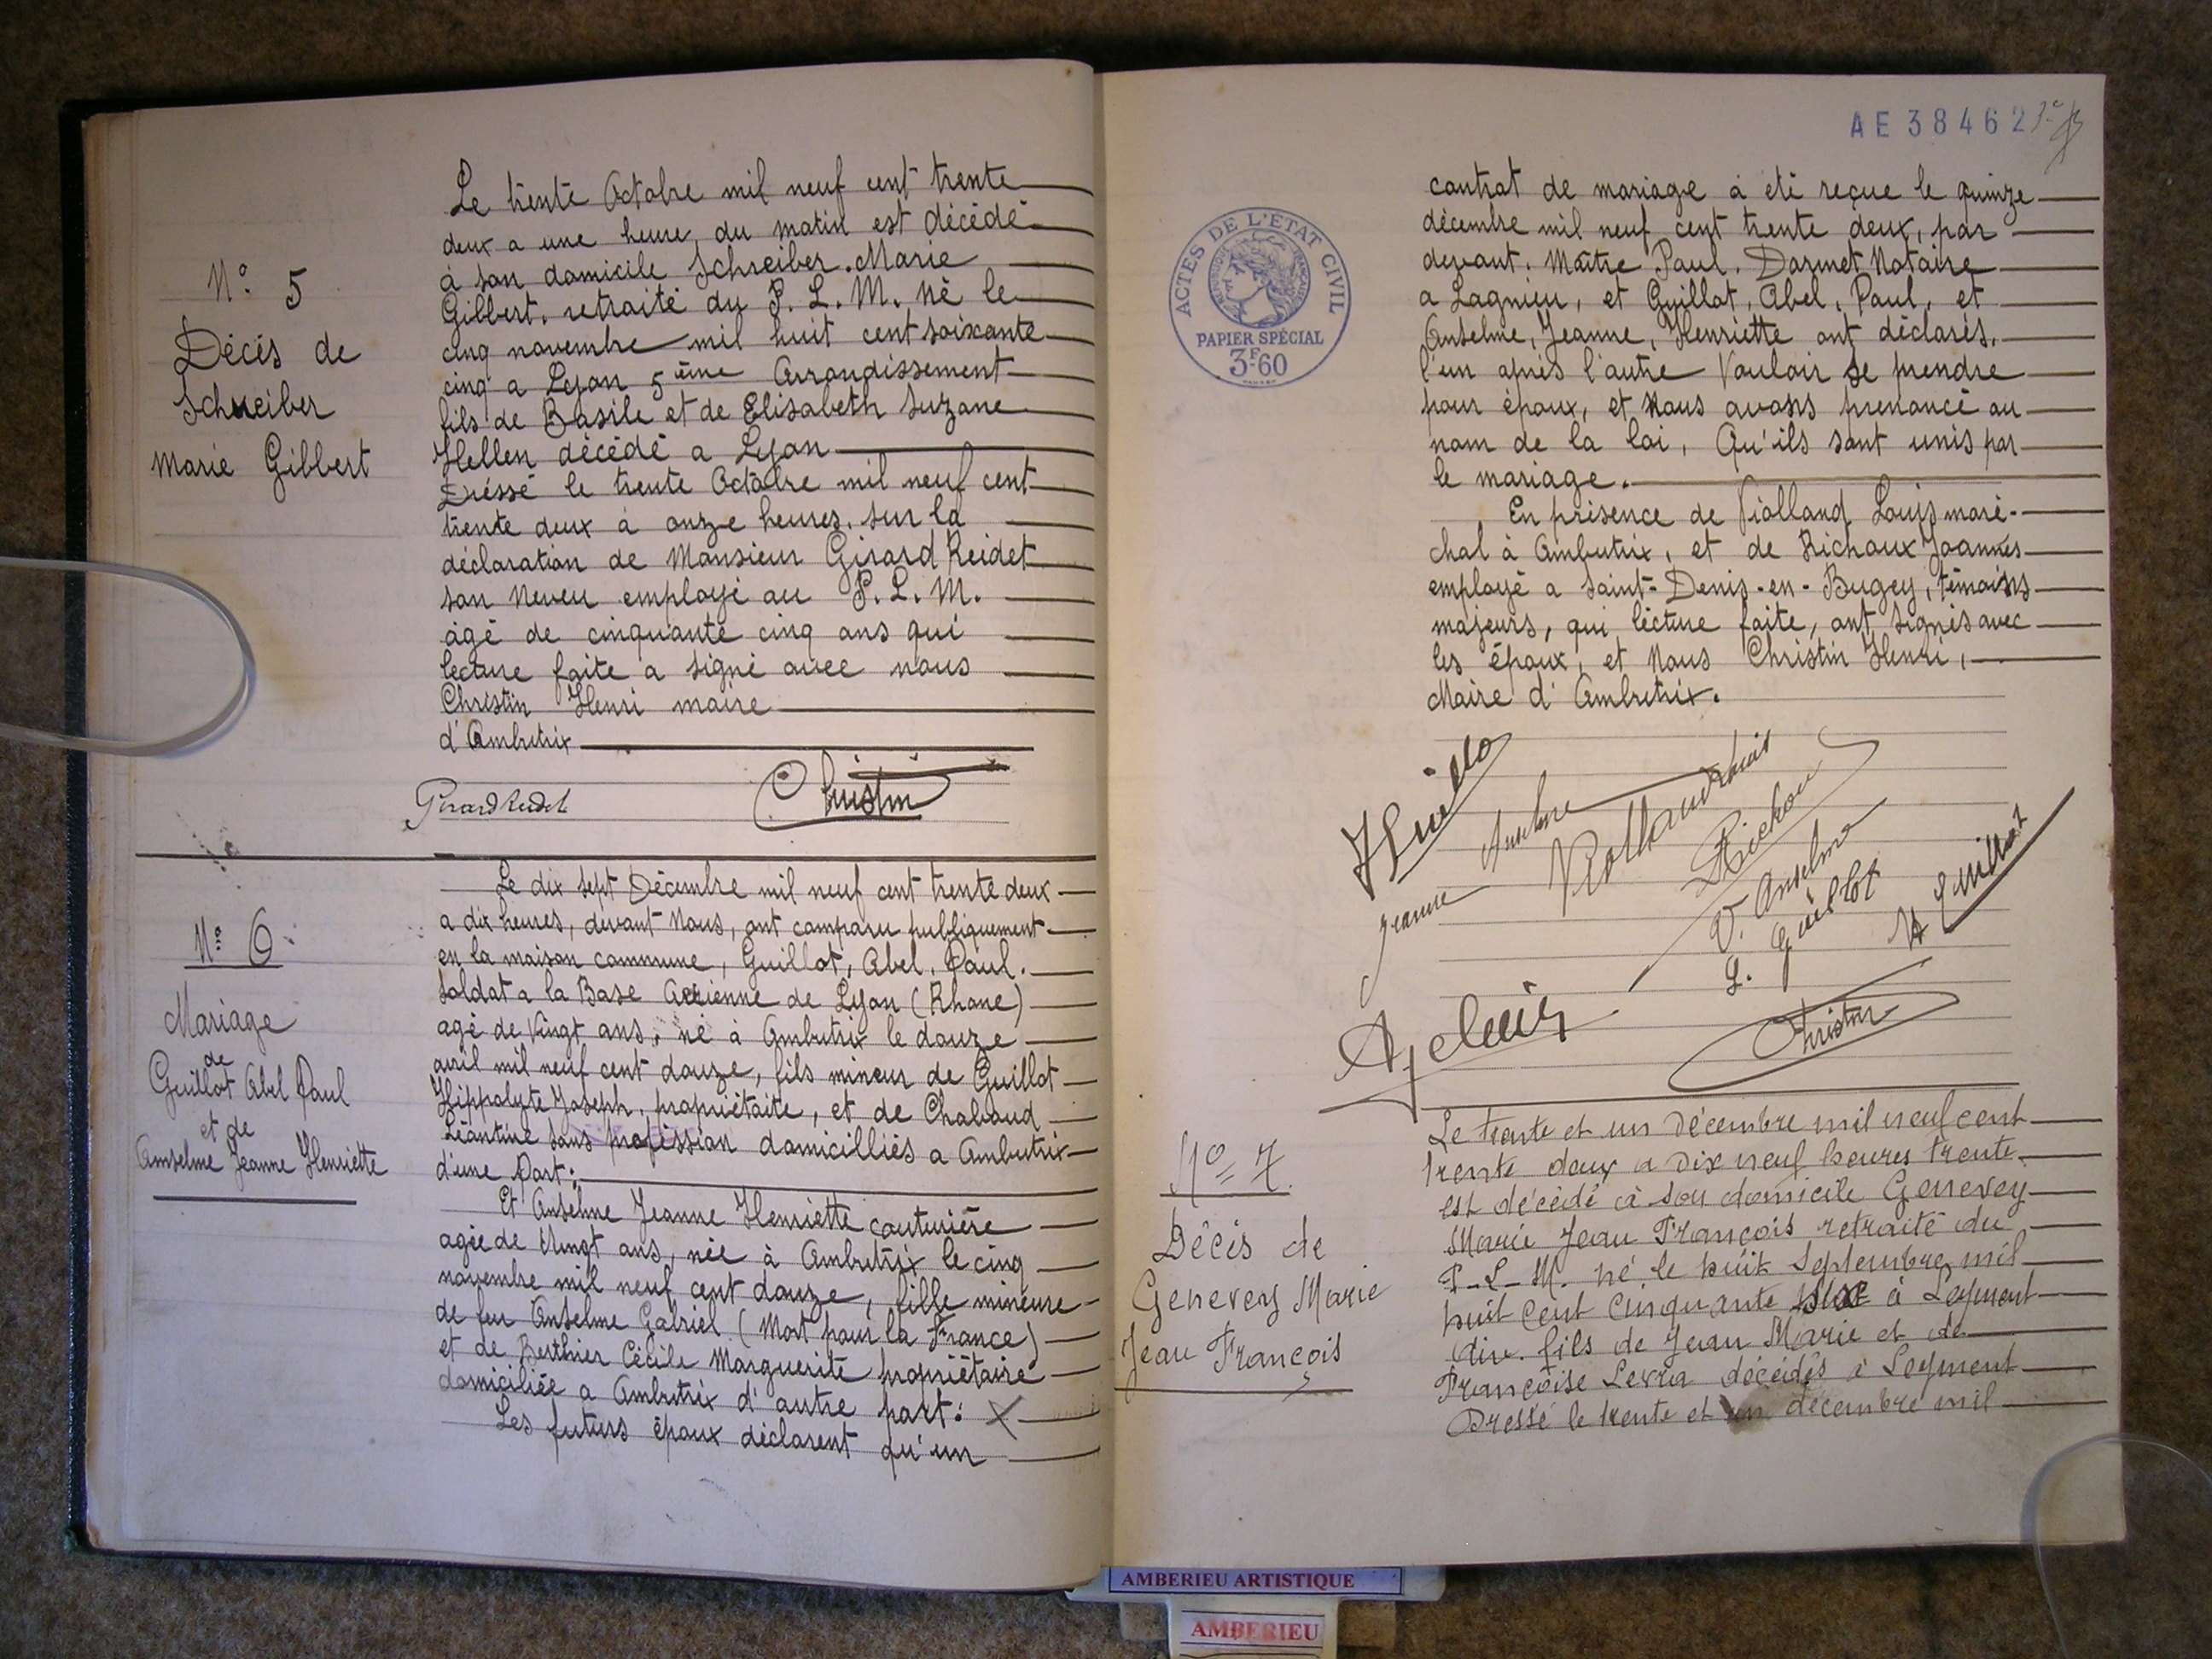 N° 5
Décès de
Schreiber
Marie Gilbert
Le trente Octobre mil neuf cent trente
deux a une heure, du matin est décédé
à son domicile Schreiber. Marie
Gilbert. retraité du P. L. M. né le
cinq novembre mil huit cent soixante
cinq a Lyon 5ème Arrondissement
fils de Basile et de Elisabeth Suzane
Hellen décédé a Lyon
Dréssé le trente Octobre mil neuf cent
trente deux à onze heures. sur la
déclaration de Monsieur Girard Reidet
son Neveu employé au P. L. M.
agé de cinquante cinq ans qui
lecture faite a signé avec nous
Christin Henri maire
d'Ambutrix
Girard Reidet
Christin
N° 6
Mariage
de
Guillot Abel Paul
et de
Anselme Jeanne Henriette
Le dix sept Décembre mil neuf cent trente deux
a dix heures, devant Nous, ont comparu publiquement
en la maison commune, Guillot, Abel. Paul.
Soldat a la Base Aérienne de Lyon (Rhone)
agé de Vingt ans, né à Ambutrix le douze
avril mil neuf cent douze, fils mineur de Guillot
Hippolyte Joseph, propriétaite, et de Chabaud
Léontine sans profession domicilliés a Ambutrix
d'une Part:
Et Anselme Jeanne Henriette couturière
agée de Vingt ans, née à Ambutrix le cinq
novembre mil neuf cent douze, fille mineure
de feu Anselme Gabriel (Mort pour la France)
et de Berthier Cécile Marguerite propriétaire
domiciliée a Ambutrix d'autre part:
Les futurs époux déclarent qu'un
AE 38462
ACTES DE L'ETAT CIVIL
REPUBLIQUE FRANÇAISE
PAPIER SPÉCIAL
3F60
contrat de mariage à été reçue le quinze
décembre mil neuf cent trente deux, par
devant. Maître Paul. Darmet Notaire
a Lagnieu, et Guillot, Abel, Paul, et
Anselme, Jeanne, Henriette ont déclarés.
l'un après l'autre Vouloir se prendre
pour époux, et Nous avons prenoncé au
nom de la loi, Qu'ils sont unis par
le mariage.
En présence de Violland Louis maré-
chal à Ambutrix, et de Richoux Joannes
employé a Saint-Denis-en-Bugey, témoins
majeurs, qui lécture faite, ont signés avec
les époux, et Nous Christin Henri,
Maire d'Ambutrix.
Jeanne Anselme
Richoux
V. Anselme
G. Guillot
H Guillot
Christin
N° 7.
Décès de
Genevey Marie
Jean François
Le trente et un Décembre mil neuf cent
trente deux a dix neuf heures trente
est décédé à son domicile Genevey
Marie Jean François retraité du
P-L-M. né le huit Septembre mil
huit cent cinquante à Leyment
Ain. fils de Jean Marie et de
Françoise Levra décédés à Leyment
Dressé le trente et un décembre mil
AMBERIEU ARTISTIQUE
AMBERIEU